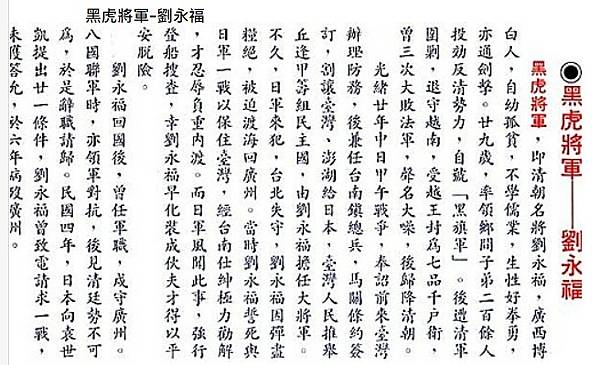 黑虎將軍-劉永福
◉黑虎將軍——劉永福
黑虎將軍，即清朝名將劉永福，廣西博
白人，自幼孤貧，不學儒業，生性好拳勇，
亦通劍擊。廿九歲，率領鄉間子弟二百餘人
投効反清勢力，自號「黑旗軍」。後遭清軍
圍剿，退守越南，受越王封為七品千戶衛，
曾三次大敗法軍，聲名大噪，後歸降清朝。
光緒廿年中日甲午戰爭，奉詔前來臺灣
辦理防務，後兼任台南鎮總兵，馬關條約簽
訂，割讓臺灣、澎湖給日本，臺灣人民推舉
丘逢甲等組民主國，由劉永福擔任大將軍。
不久，日軍來犯，台北失守，劉永福因彈盡
糧絕，被迫渡海回廣州。當時劉永福誓死與
日軍一戰以保住臺灣，經台南仕紳極力勸解
，才忍辱負重內渡。而日軍風聞此事，強行
登船搜查，幸劉永福早化裝成伙夫才得以平
安脫險。
劉永福回國後，曾任軍職，戍守廣州。
八國聯軍時，亦領軍對抗，後見清廷勢不可
為，於是辭職請歸。民國四年，日本向袁世
凱提出廿一條件，劉永福曾致電請求一戰，
未獲答允，於六年病歿廣州。